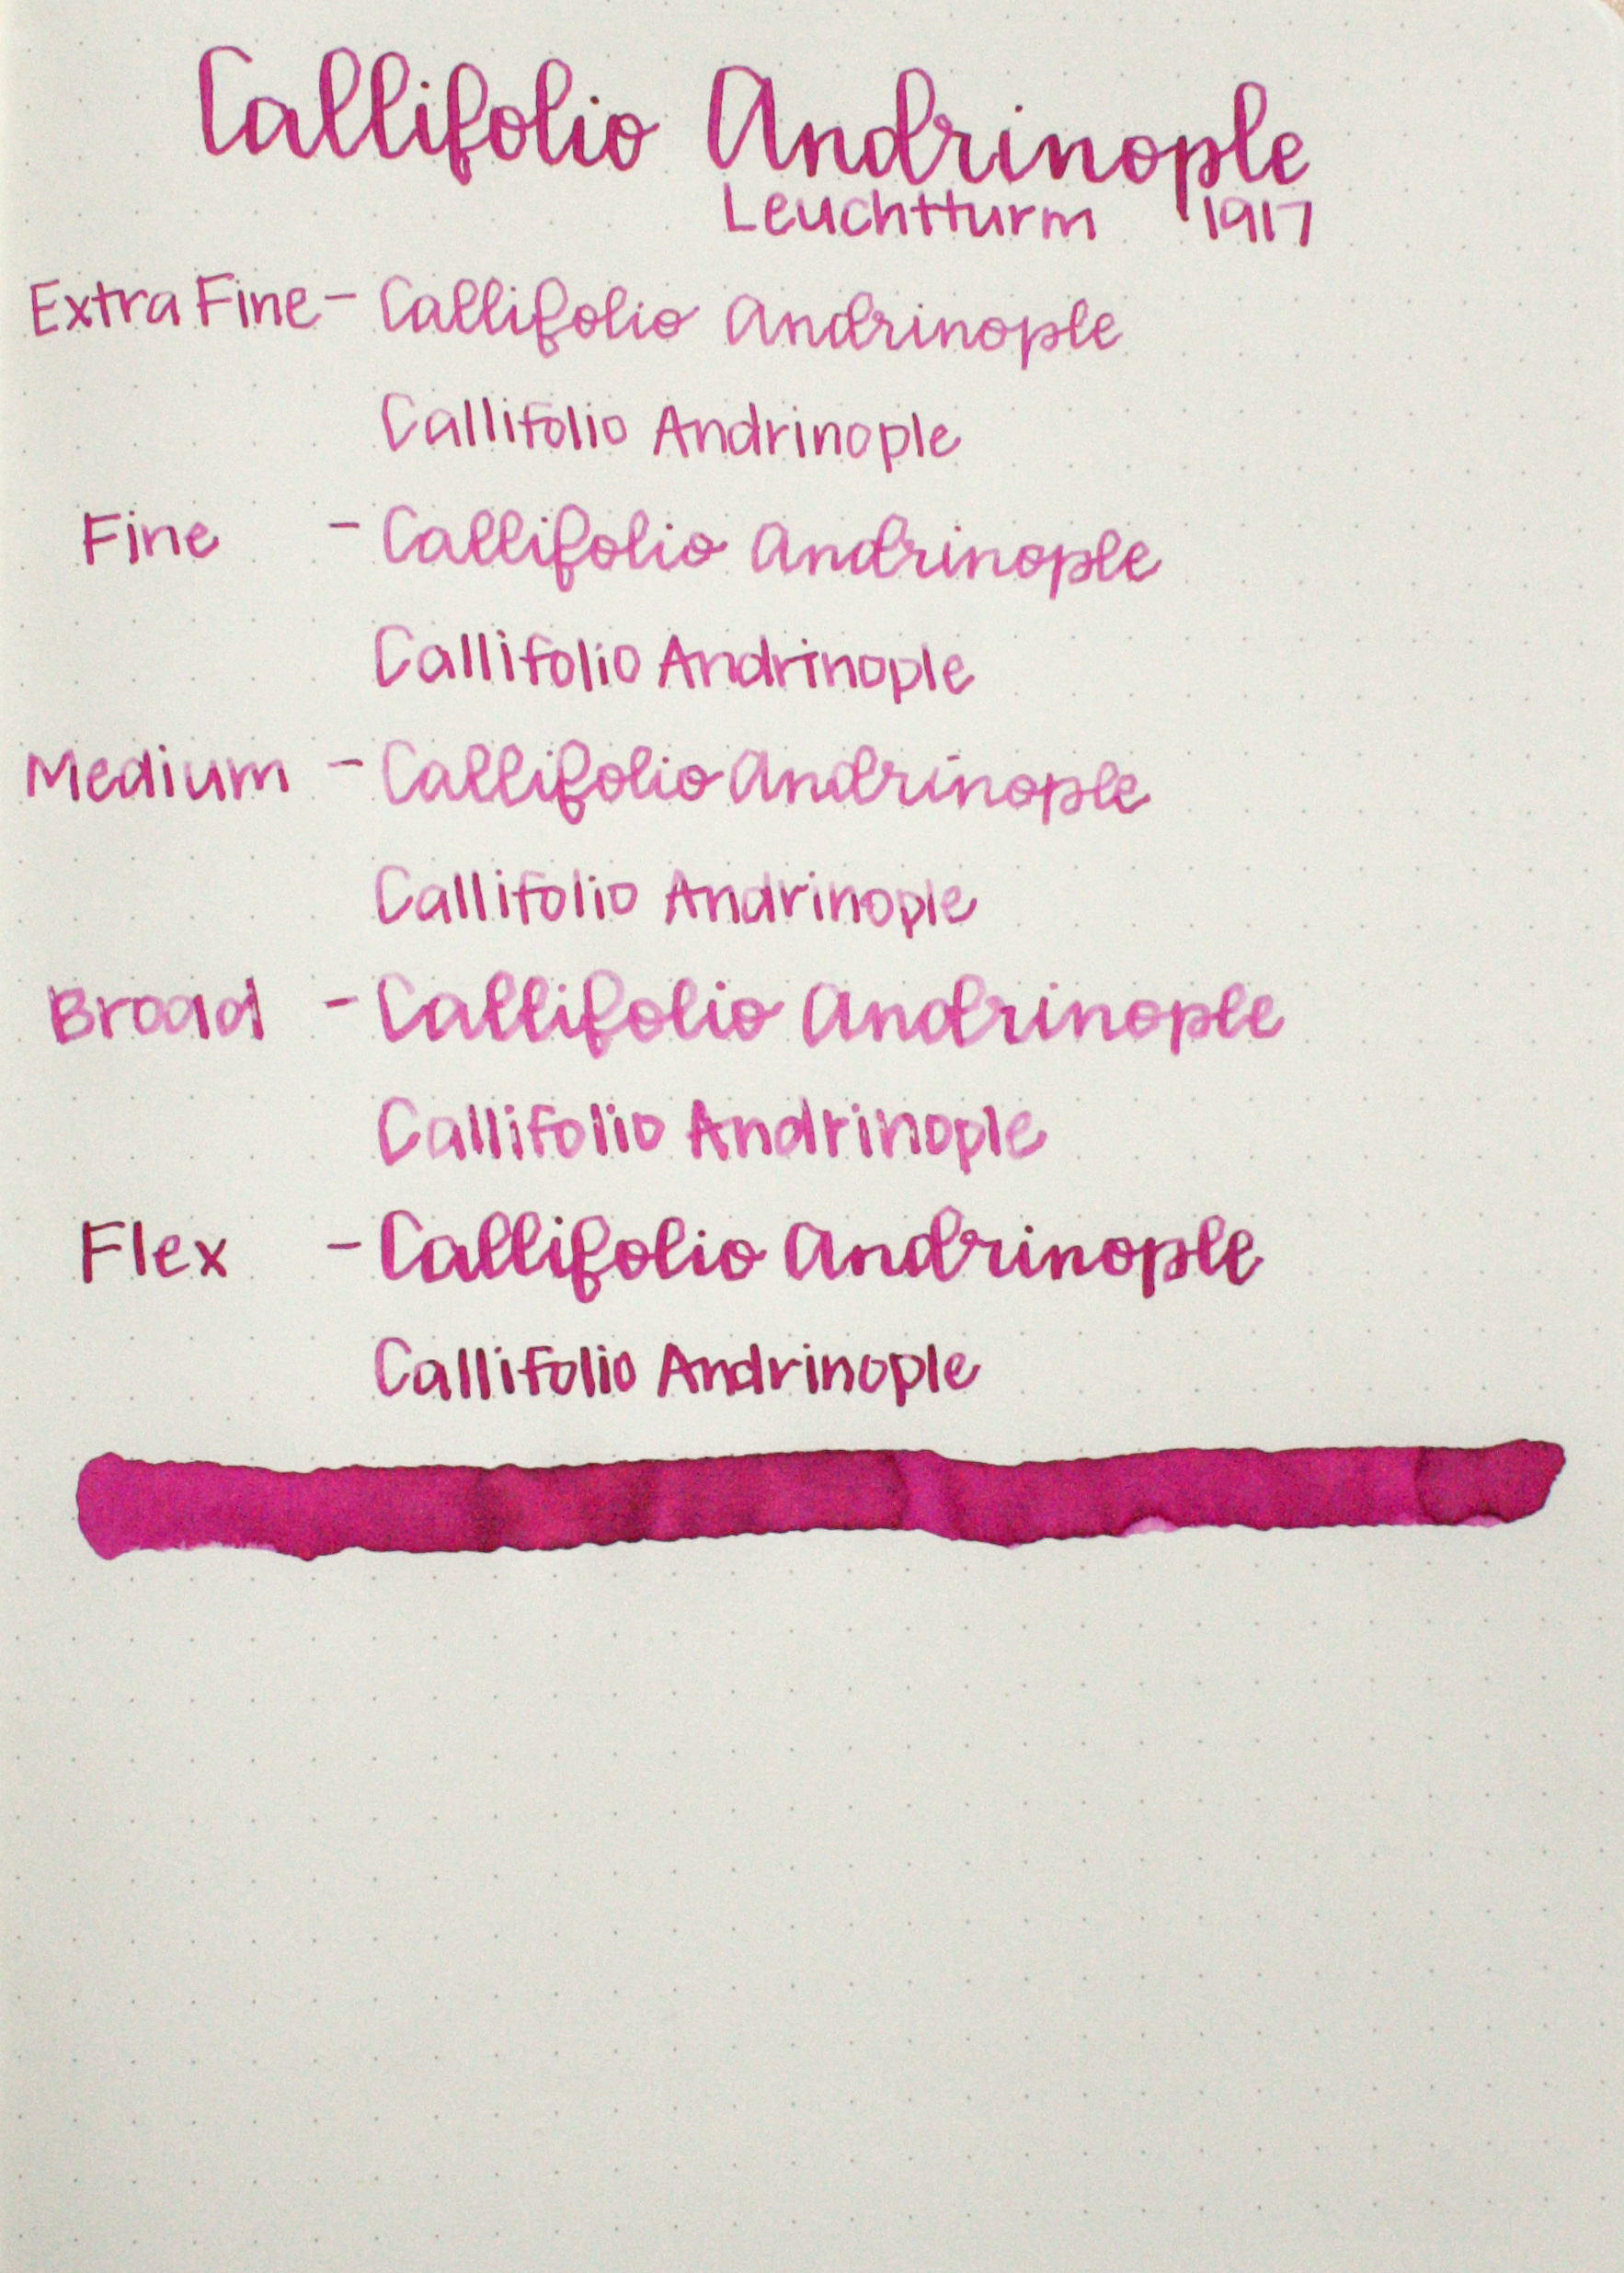 Callifolio Andrinople
Leuchtturm 1917
Extra Fine - Callifolio Andrinople
Callifolio Andrinople
Fine - Callifolio Andrinople
Callifolio Andrinople
Medium - Callifolio Andrinople
Callifolio Andrinople
Broad - Callifolio Andrinople
Callifolio Andrinople
Flex - Callifolio Andrinople
Callifolio Andrinople